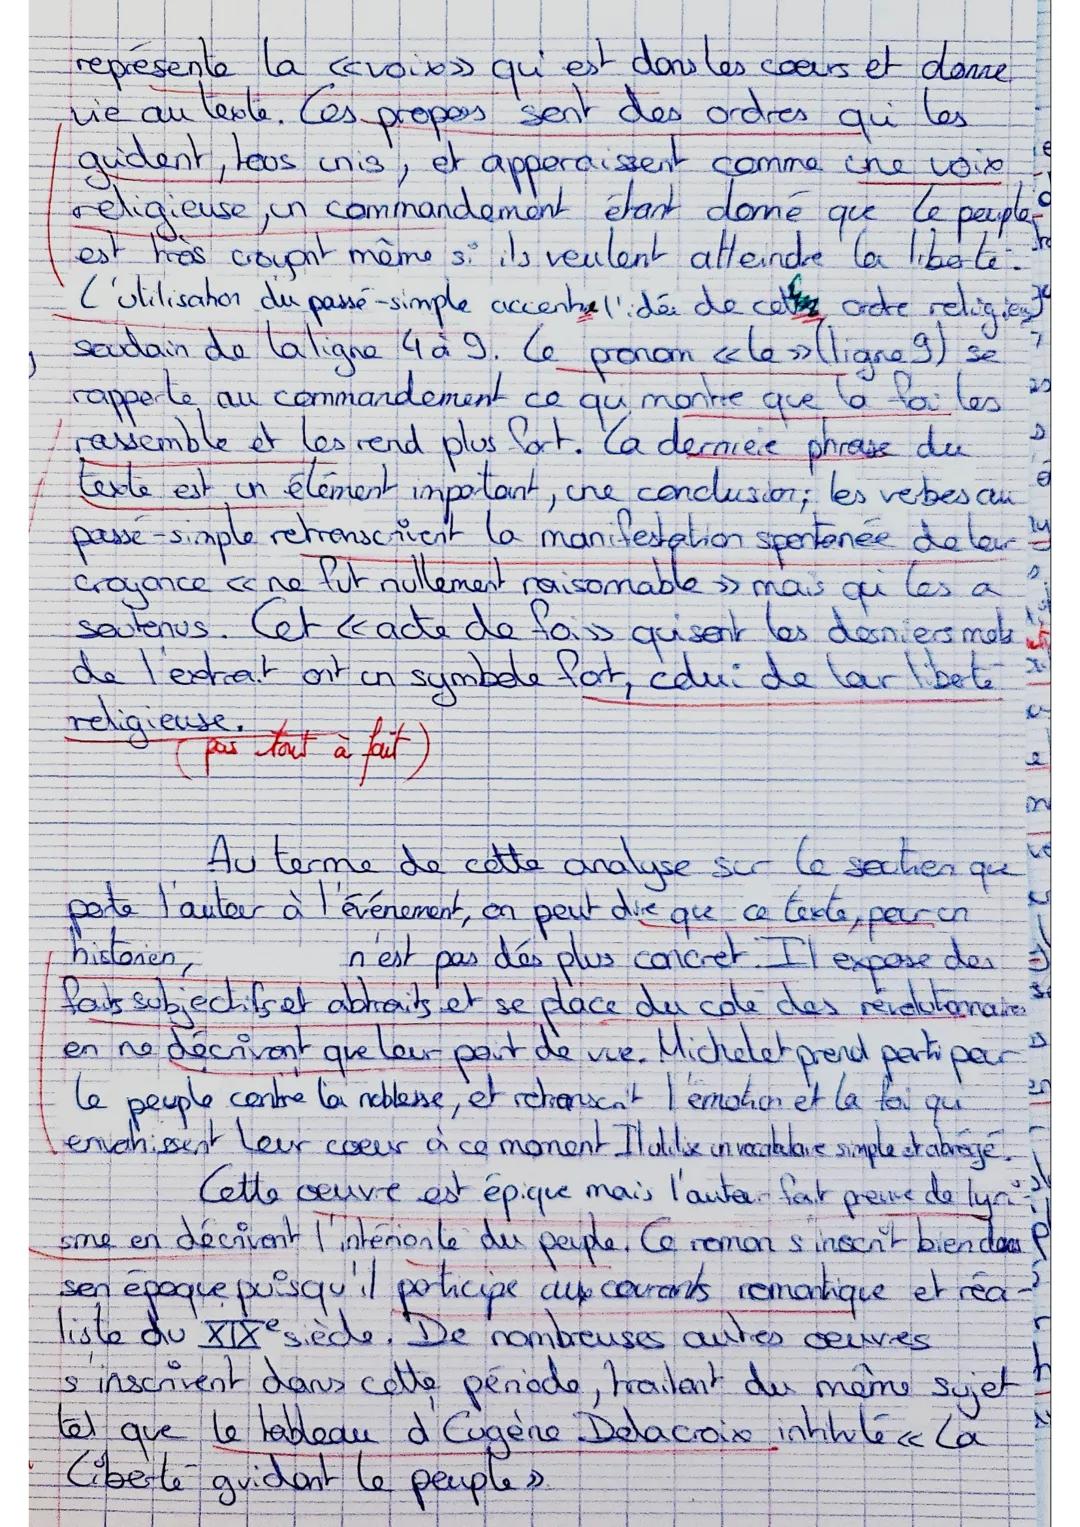 représente la «voix» qui est dans les coeurs et donne
vie au texte. Ces propos sont des ordres qui les
guident, tous unis, et apparaissent comme une voix
religieuse, un commandement étant donné que le peuple
est très croyant même si ils veulent atteindre la liberté.
L'utilisation du passé-simple accentue l'idée de cet ordre religieux
soudain de la ligne 4 à 9. Le pronom «le» (ligne 9) se
rapporte au commandement ce qui montre que la foi les
rassemble et les rend plus fort. La dernière phrase du
texte est un élément important, une conclusion; les verbes au
passé-simple retranscrivent la manifestation spontanée de leur
croyance «ne fut nullement raisonnable» mais qui les a
soutenus. Cet «acte de foi» qui sont les derniers mots
de l'extrait ont un symbole fort, celui de leur liberté
religieuse.
(pas tout à fait)
Au terme de cette analyse sur le soutien que
porte l'auteur à l'événement, on peut dire que ce texte, pour un
historien, n'est pas dés plus concret. Il expose des
faits subjectifs et abtraits et se place du coté des révolutionnaires
en ne décrivant que leur point de vue. Michelet prend parti pour
le peuple contre la noblesse, et retranscrit l'émotion et la foi qui
envahissent leur coeur à ce moment. Il utilise un vocabulaire simple et abrégé.
Cette oeuvre est épique mais l'auteur fait preuve de lyri-
sme en décrivant l'intériorité du peuple. Ce roman s'inscrit bien dans
son époque puisqu'il participe aux courants romantique et réa-
liste du XIXe siècle. De nombreuses autres oeuvres
s'inscrivent dans cette période, traitant du même sujet
tel que le tableau d'Eugène Delacroix intitulé «La
Liberté guidant le peuple».